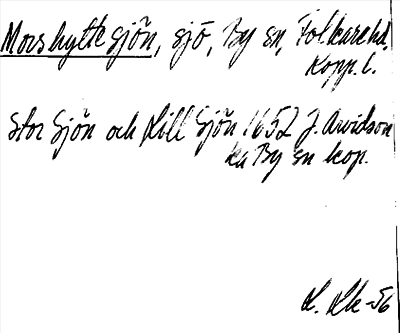 Morshyttesjön, sjö, By sn, Folkare hd,
Kopp. l.
Stor Sjön och Lill Sjön 1652 J. Arvidson
ka By sn kop.
L. Lk -56